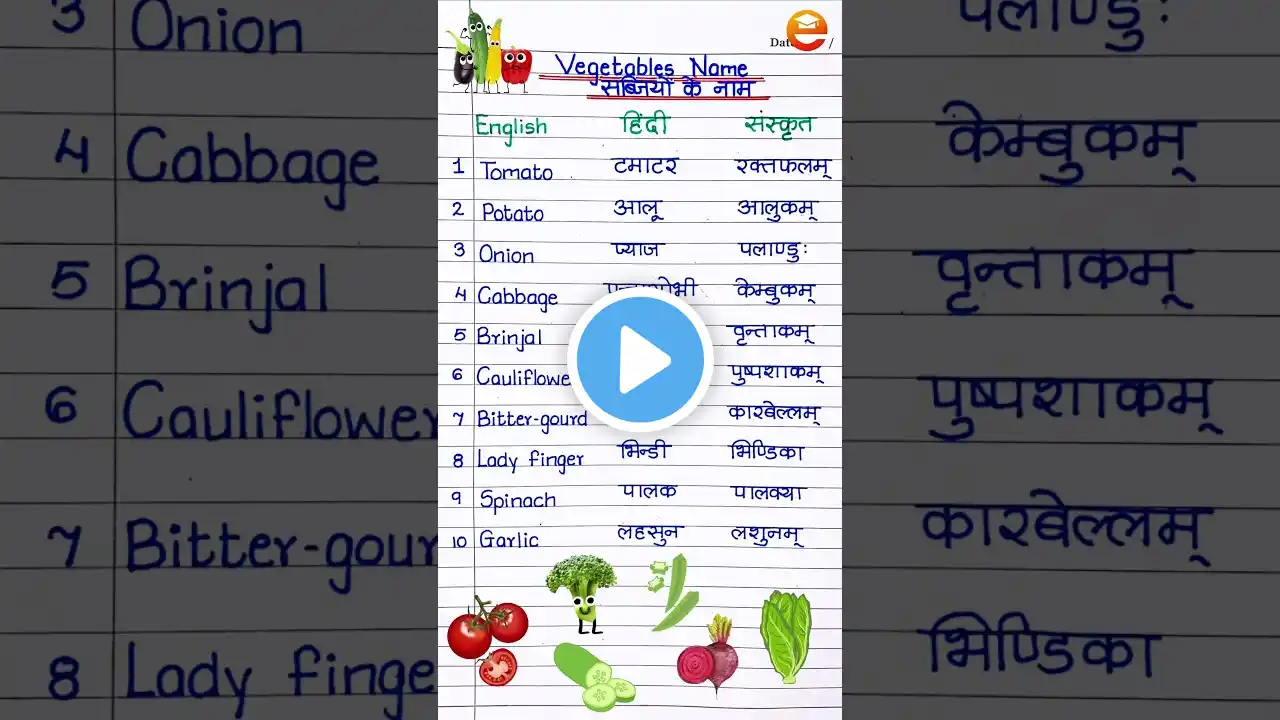 3 Onion
4 Cabbage
5 Brinjal
6 Cauliflower
7 Bitter-gour
8 Lady finge
Vegetables Name
सब्जियों के नाम
English हिंदी संस्कृत
1 Tomato टमाटर रक्तफलम्
2 Potato आलू आलुकम्
3 Onion प्याज पलाण्डुः
4 Cabbage केम्बुकम्
5 Brinjal वृन्ताकम्
6 Cauliflowe पुष्पशाकम्
7 Bitter-gourd कारबेल्लम्
8 Lady finger भिन्डी भिण्डिका
9 Spinach पालक पालक्या
10 Garlic लहसुन लशुनम्
पलाण्डुः
केम्बुकम्
वृन्ताकम्
पुष्पशाकम्
कारबेल्लम्
भिण्डिका